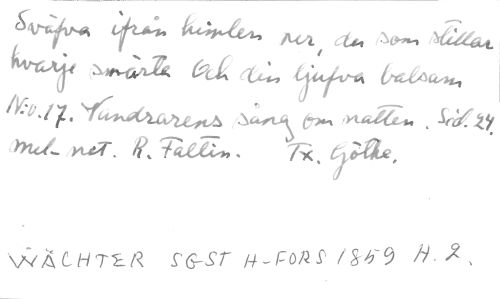 Sväfva ifrån himlen ner, du som stillar
hvarje smärta Och din ljufva balsam
N:o. 17. Vandrarens sång om natten. Sid. 24.
mel- not. R. Faltin. Tx. Göthe.
WÄCHTER SGST H-FORS 1859 H. 2.